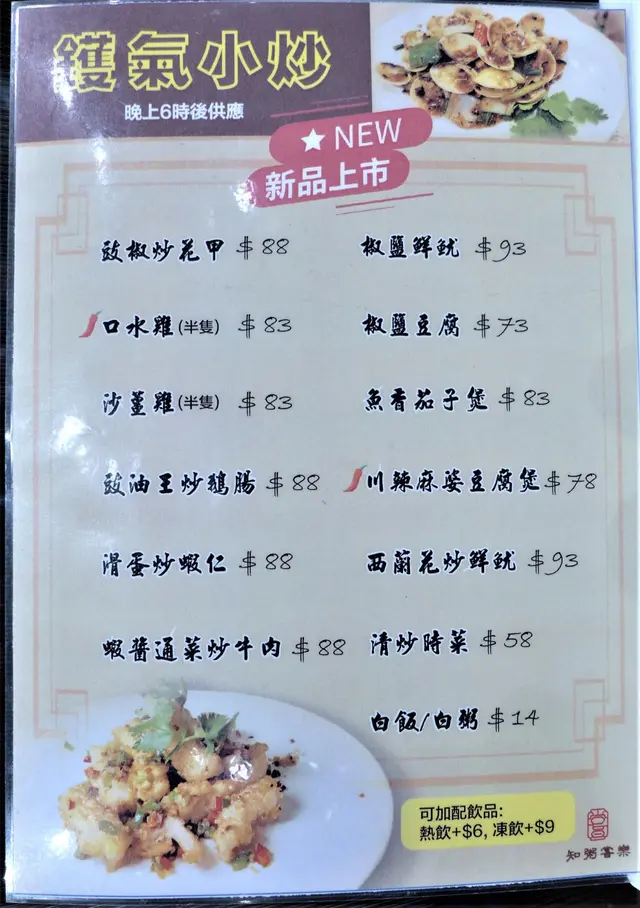 鑊氣小炒
晚上6時後供應
★ NEW
新品上市
豉椒炒花甲 $88
口水雞(半隻) $83
沙薑雞(半隻) $83
豉油王炒鵝腸 $88
滑蛋炒蝦仁 $88
蝦醬通菜炒牛肉 $88
椒鹽鮮魷 $93
椒鹽豆腐 $73
魚香茄子煲 $83
川辣麻婆豆腐煲 $78
西蘭花炒鮮魷 $93
清炒時菜 $58
白飯/白粥 $14
可加配飲品:
熱飲+$6, 凍飲+$9
知粥常樂